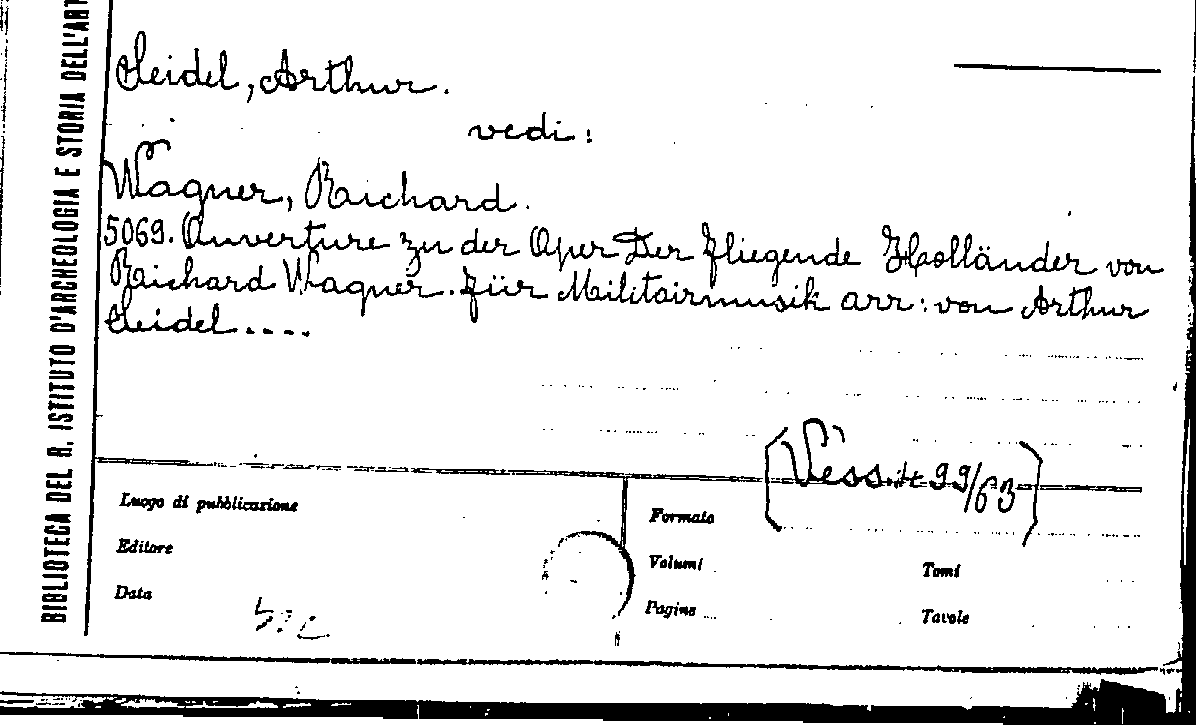 BIBLIOTECA DEL R. ISTITUTO D'ARCHEOLOGIA E STORIA DELL'ART
Seidel, Arthur.
vedi:
Wagner, Richard.
5069. Ouverture zu der Oper Der fliegende Holländer von
Richard Wagner. Für Militairmusik arr: von Arthur
Seidel....
[Vess. 99/63]
Luogo di pubblicazione
Formato
Editore
Volumi
Tomi
Data
Pagine
Tavole